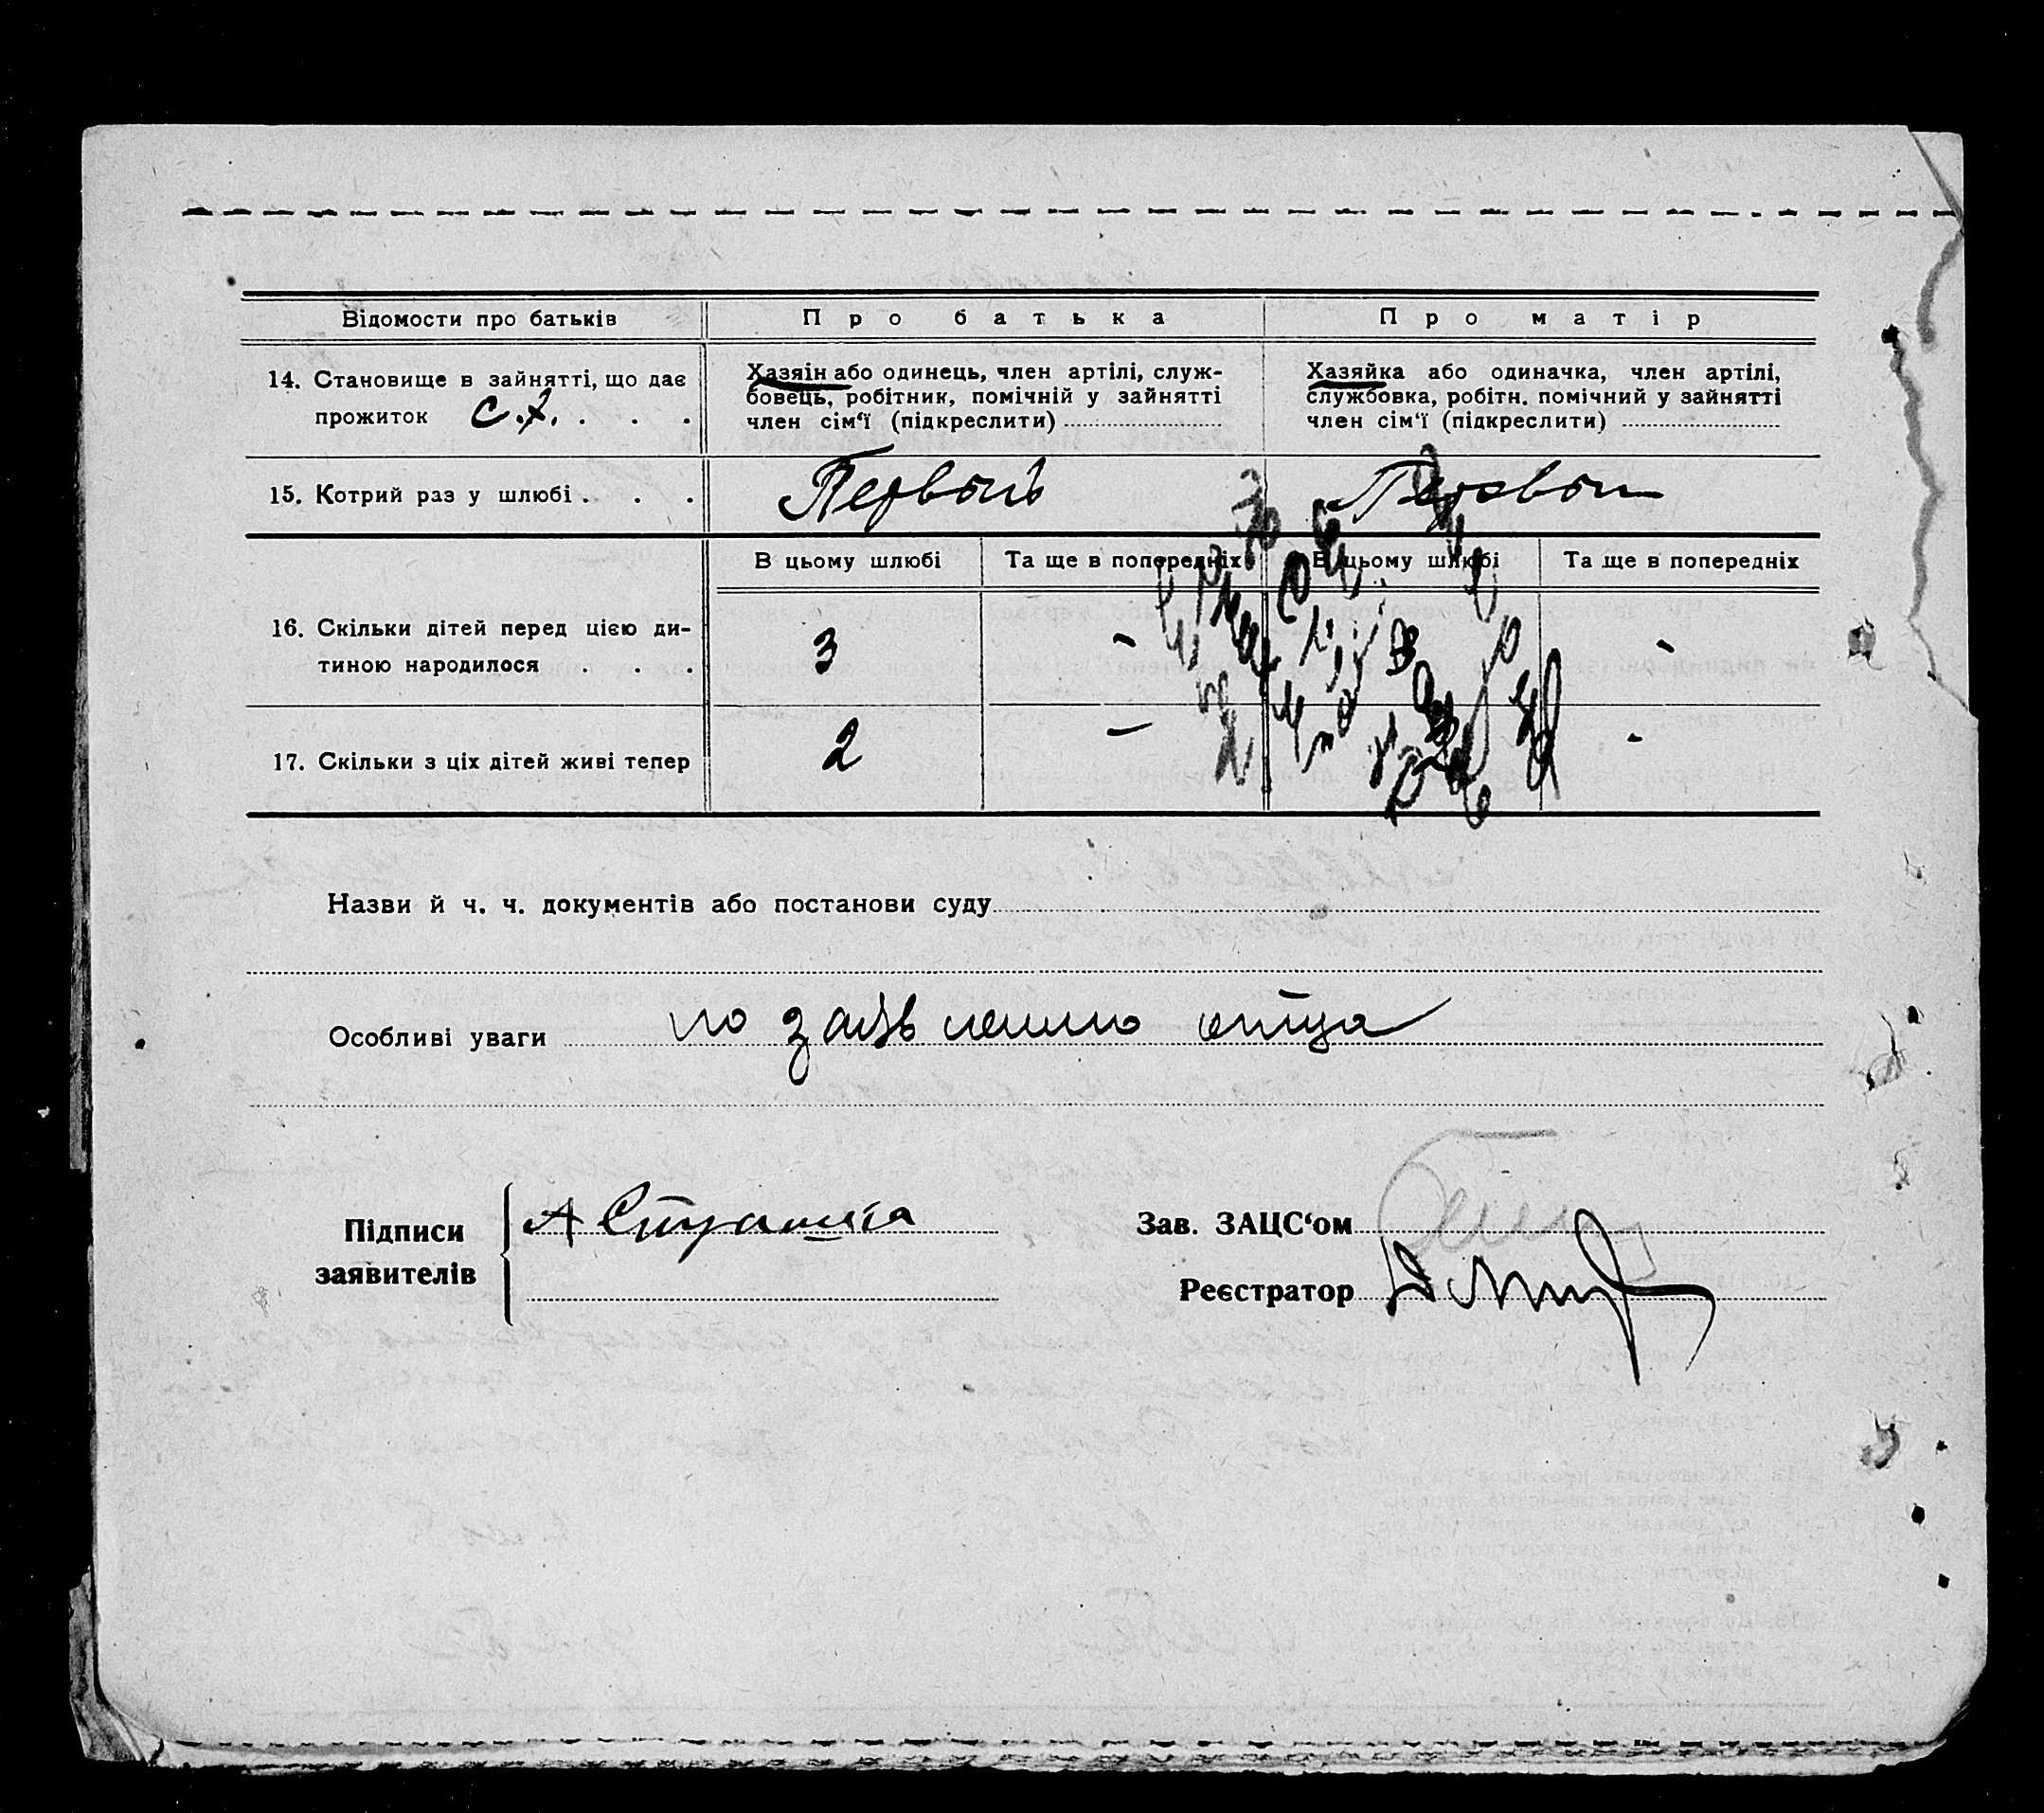 Відомости про батьків
Про батька
Про матір
14. Становище в зайнятті, що дає
прожиток с.х. . . .
Хазяїн або одинець, член артілі, служ-
бовець, робітник, помічній у зайнятті
член сім‘ї (підкреслити)
Хазяйка або одиначка, член артілі,
службовка, робітн. помічний у зайнятті
член сім‘ї (підкреслити)
15. Котрий раз у шлюбі . . .
Первый
Первый
В цьому шлюбі
Та ще в попередніх
В цьому шлюбі
Та ще в попередніх
16. Скільки дітей перед цією ди-
тиною народилося . . .
3 - -
17. Скільки з ціх дітей живі тепер
2 - -
Назви й ч. ч. документів або постанови суду
Особливі уваги по заявлению отца
Підписи
заявителів
А
Зав. ЗАЦС‘ом
Реєстратор